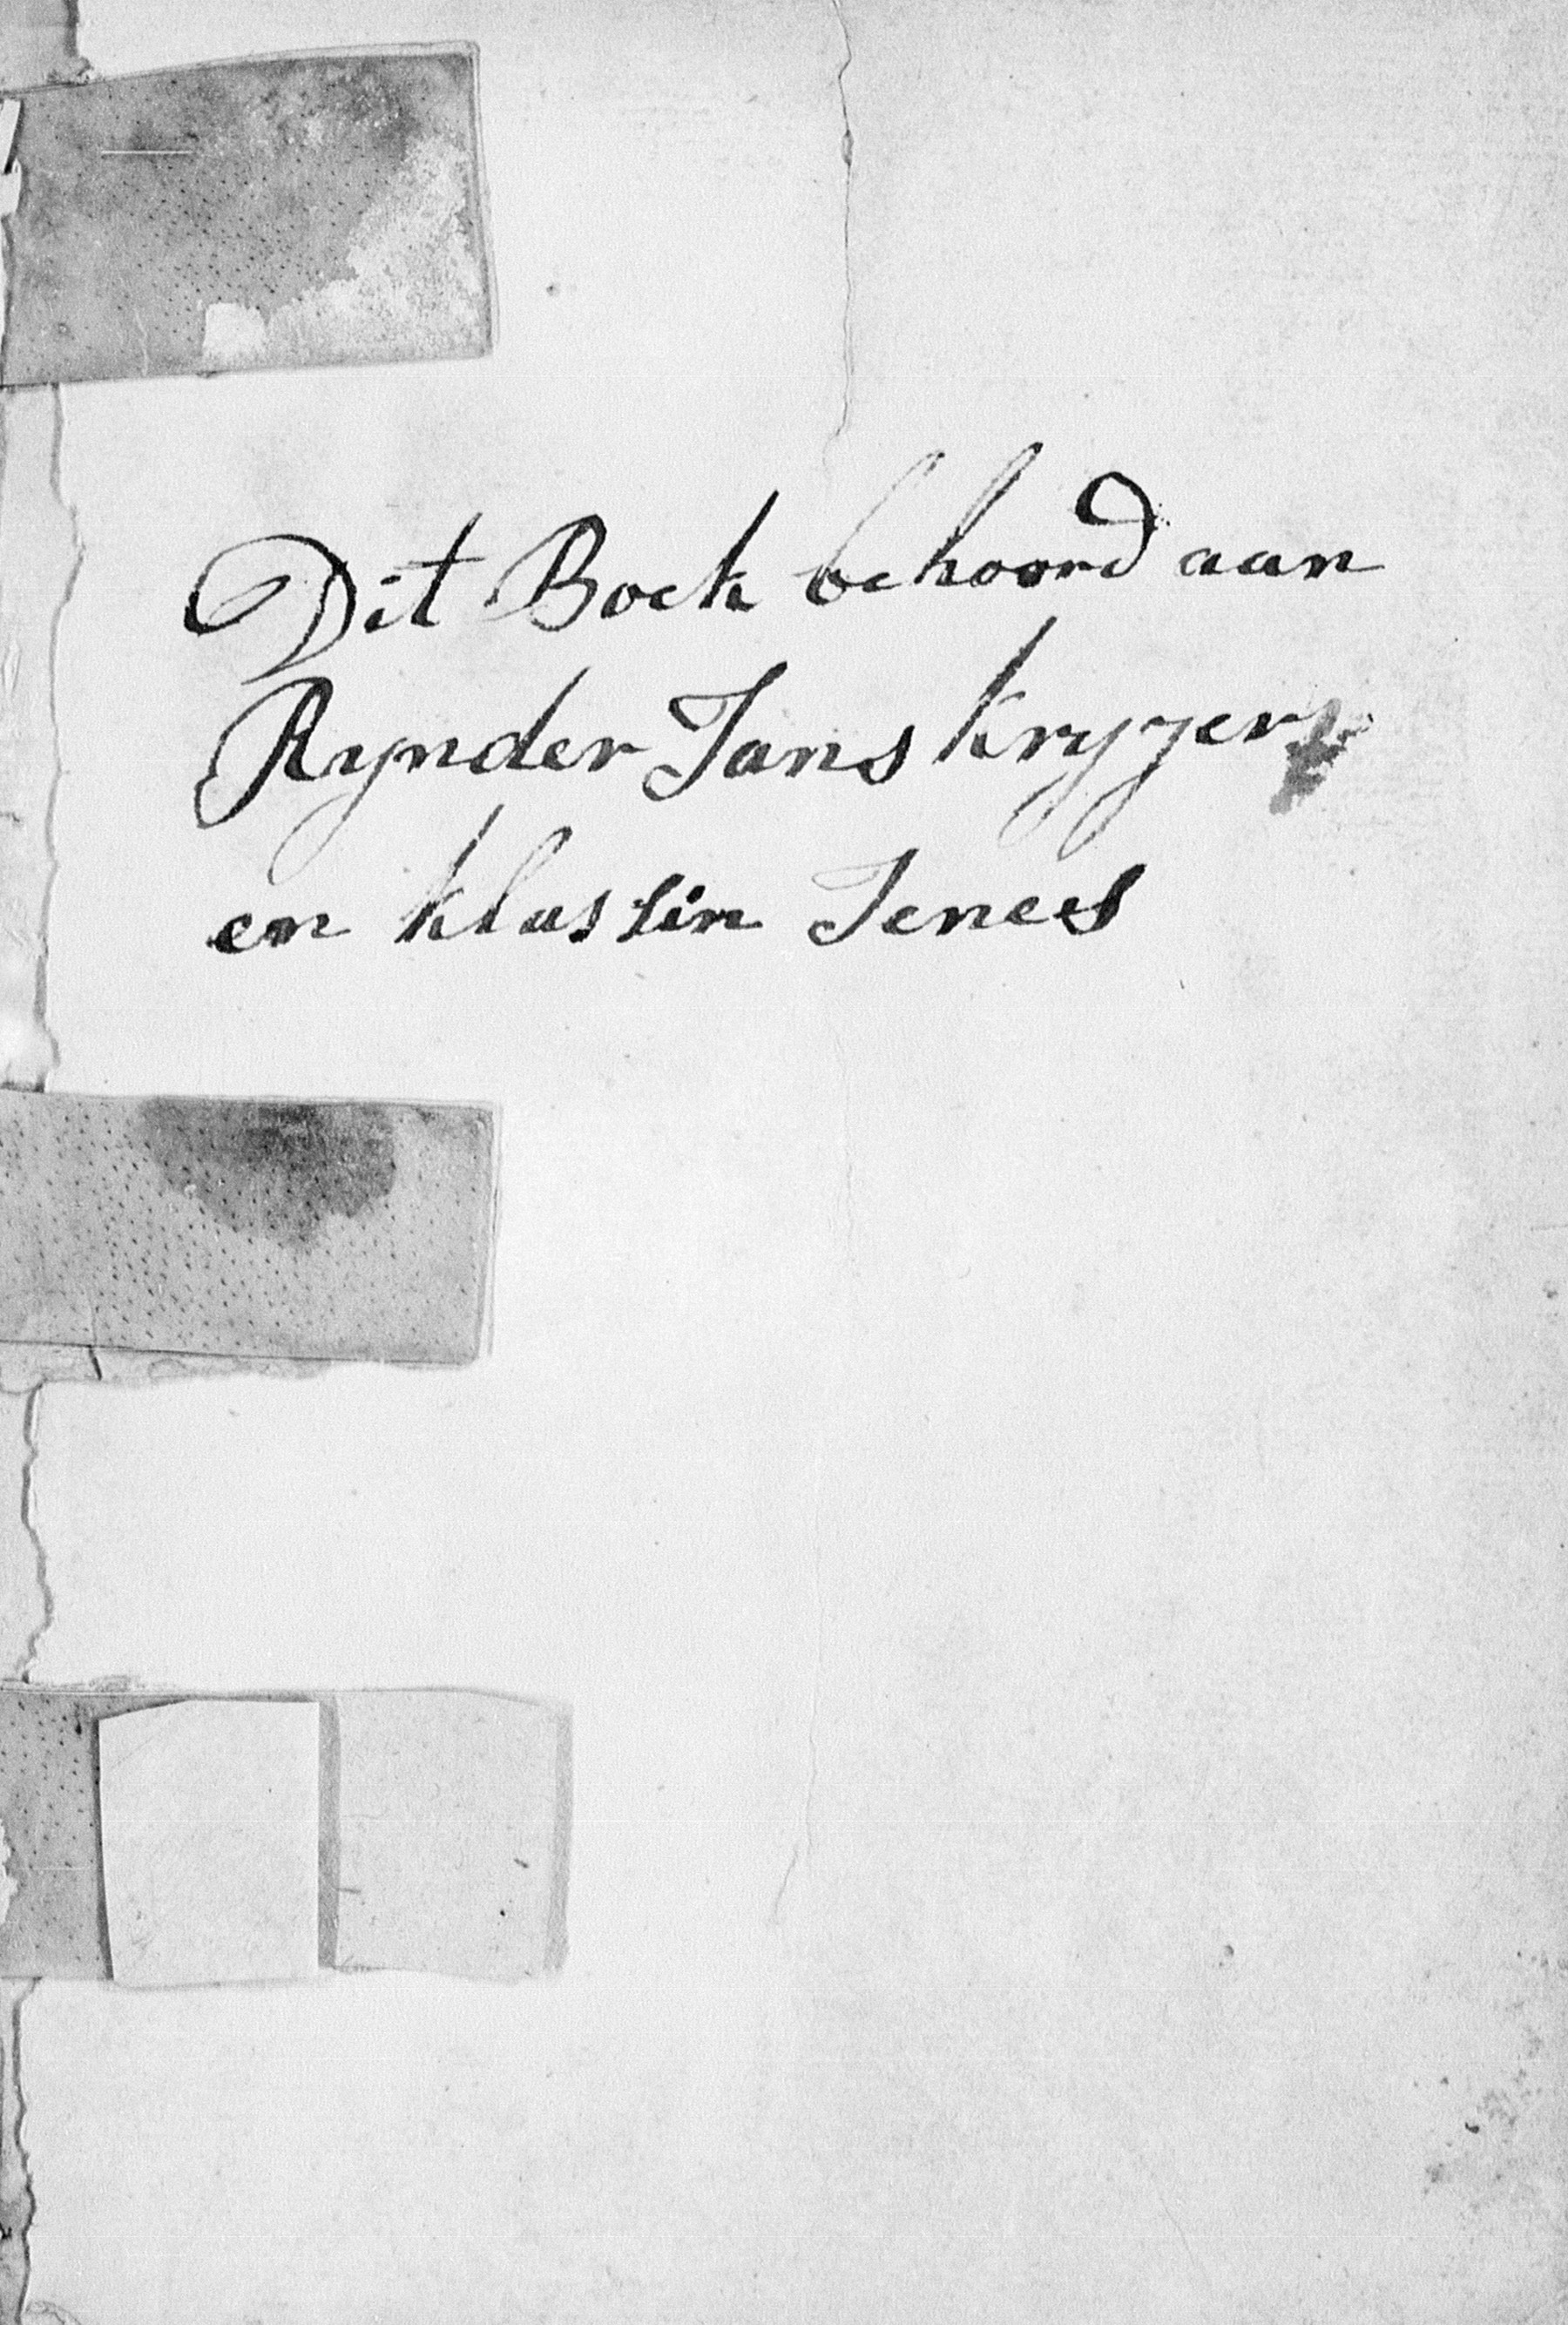 Dit Boek behoord aan
Rynder Jans kryger
en klassin Jenes